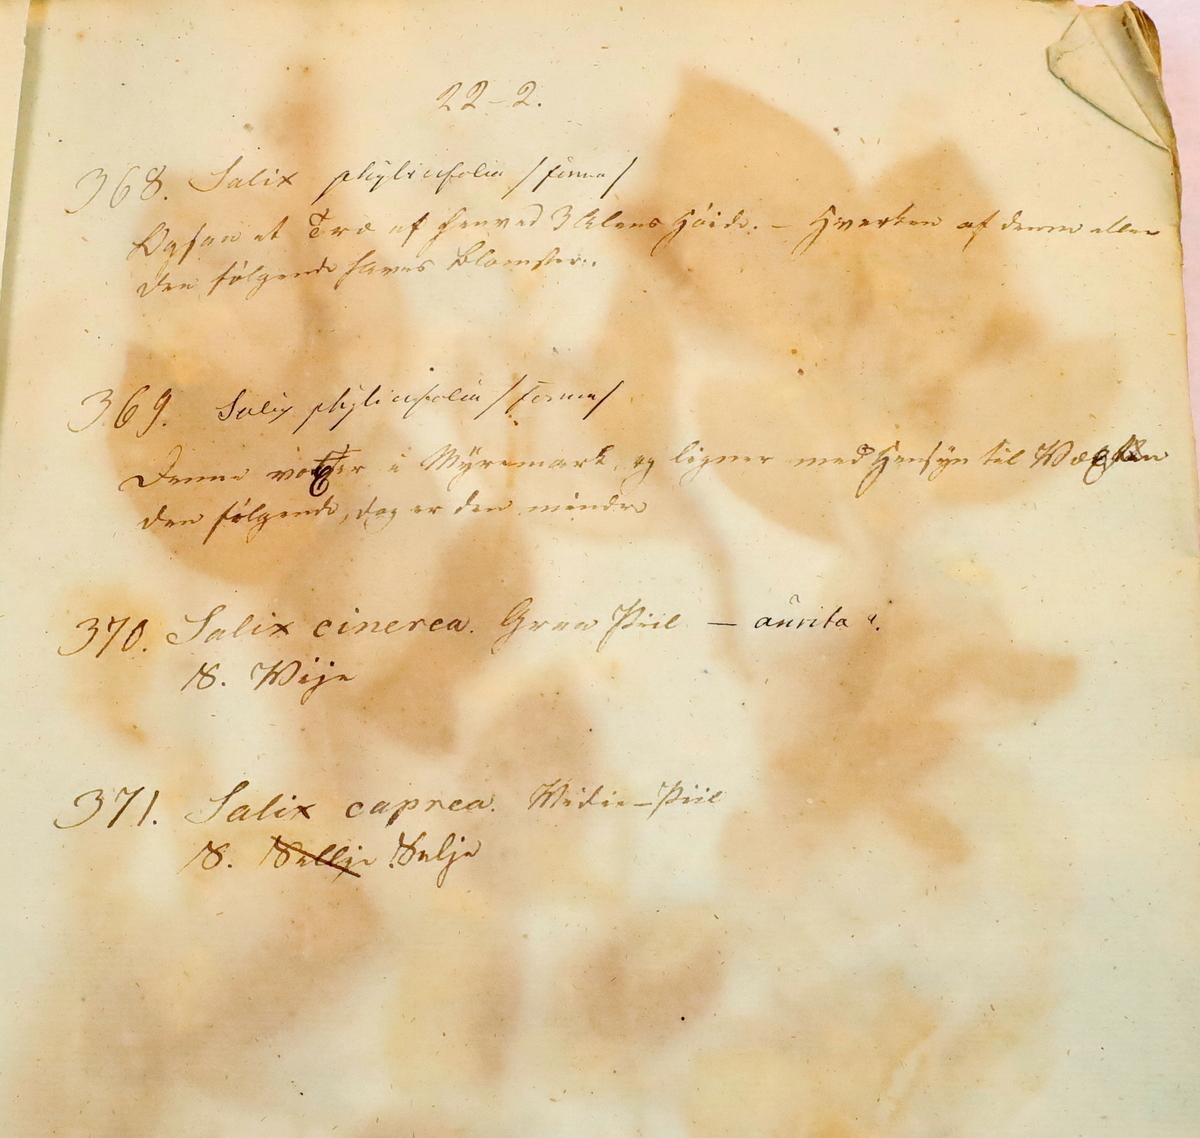 22-2.
368. Salix phylicifolia /forma/
Ogsaa et Træ af henved 3 Alens Høide. – Hverken af denne eller
den følgende haves Blomster.
369. Salix phylicifolia /forma/
Denne voxer i Myremark, og ligner med Hensyn til Væxten
den følgende, dog er den mindre
370. Salix cinerea. Graa Piil – aurita ?.
N. Vije
371. Salix caprea. Vidie-Piil
N. Sellje Selje